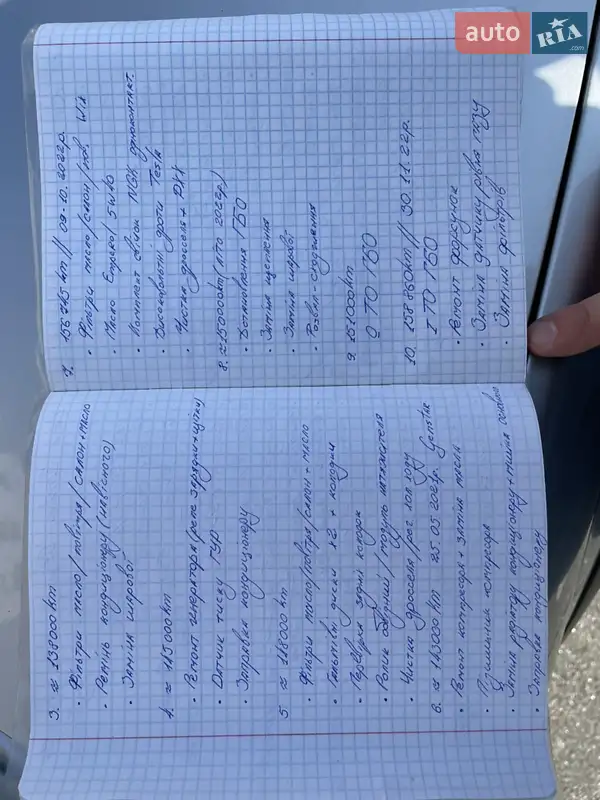 auto RIA .com
3. ≈ 138000 km
• Фільтри масло/повітря/салон+масло
• Ремінь кондиціонеру (навісного)
• Заміна шарової
4. ≈ 145000 km
• Ремонт генератора (реле зарядки+щітки)
• Датчик тиску ГУР
• Заправка кондиціонеру
5 ≈ 148000 km
• Фільтри масло/повітря/салон + масло
• Гальмівні диски x2 + колодки
• Перевірка задніх колодок
• Ролик обвідний/ натяжителя
• Чистка дросселя/рег. хол. ходу
6. ≈ 143000 km 25.05.2021р.
• Ремонт компресора + заміна масла
• Підшипник компресора
• Заміна радіатору кондиціонеру+ основного
• Заправка кондиціонеру
7. 156745 km // 09.10.2022р.
• Фільтри масло/салон/пов. Wix
• Масло 5w40
• Комплект свічок NGK одноконтакт.
• Високовольтні дроти Tesla
• Чистка дросселя + РХХ
8. ≈150000 km (літо 2022р)
• Встановлення ГБО
• Заміна щеплення
• Заміна шарової
• Розвал-сходження
9. 151000 km
0 ТО ГБО
10. 158860 km // 30.11.22р.
I ТО ГБО
• Ремонт форсунок
• Заміна датчику рівня газу
• Заміна фільтрів